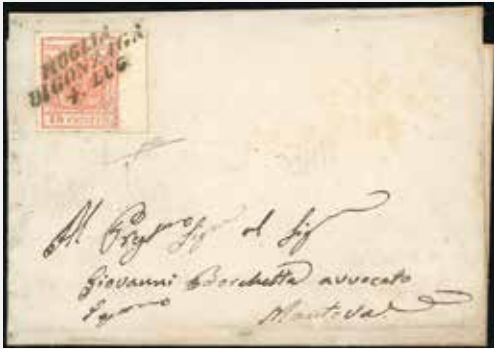 MOGLIA
DI GONZAGA
4. LUG
15 CENTES
Al Preg.mo Sig.r el Sig
Giovanni Borchetta avvocato
Mantova